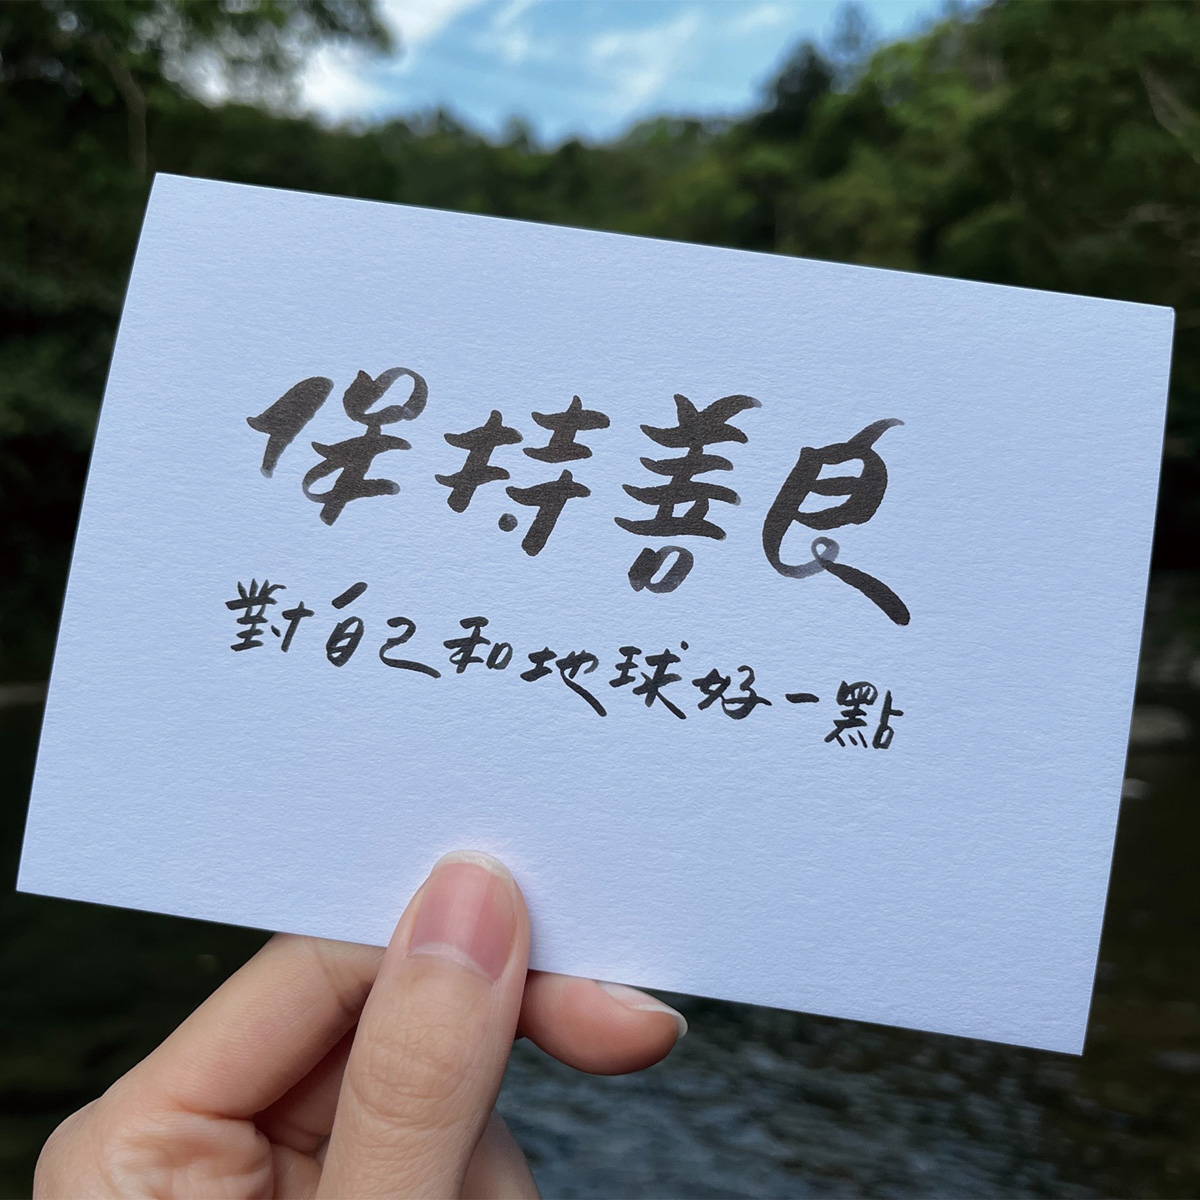 保持善良
對自己和地球好一點